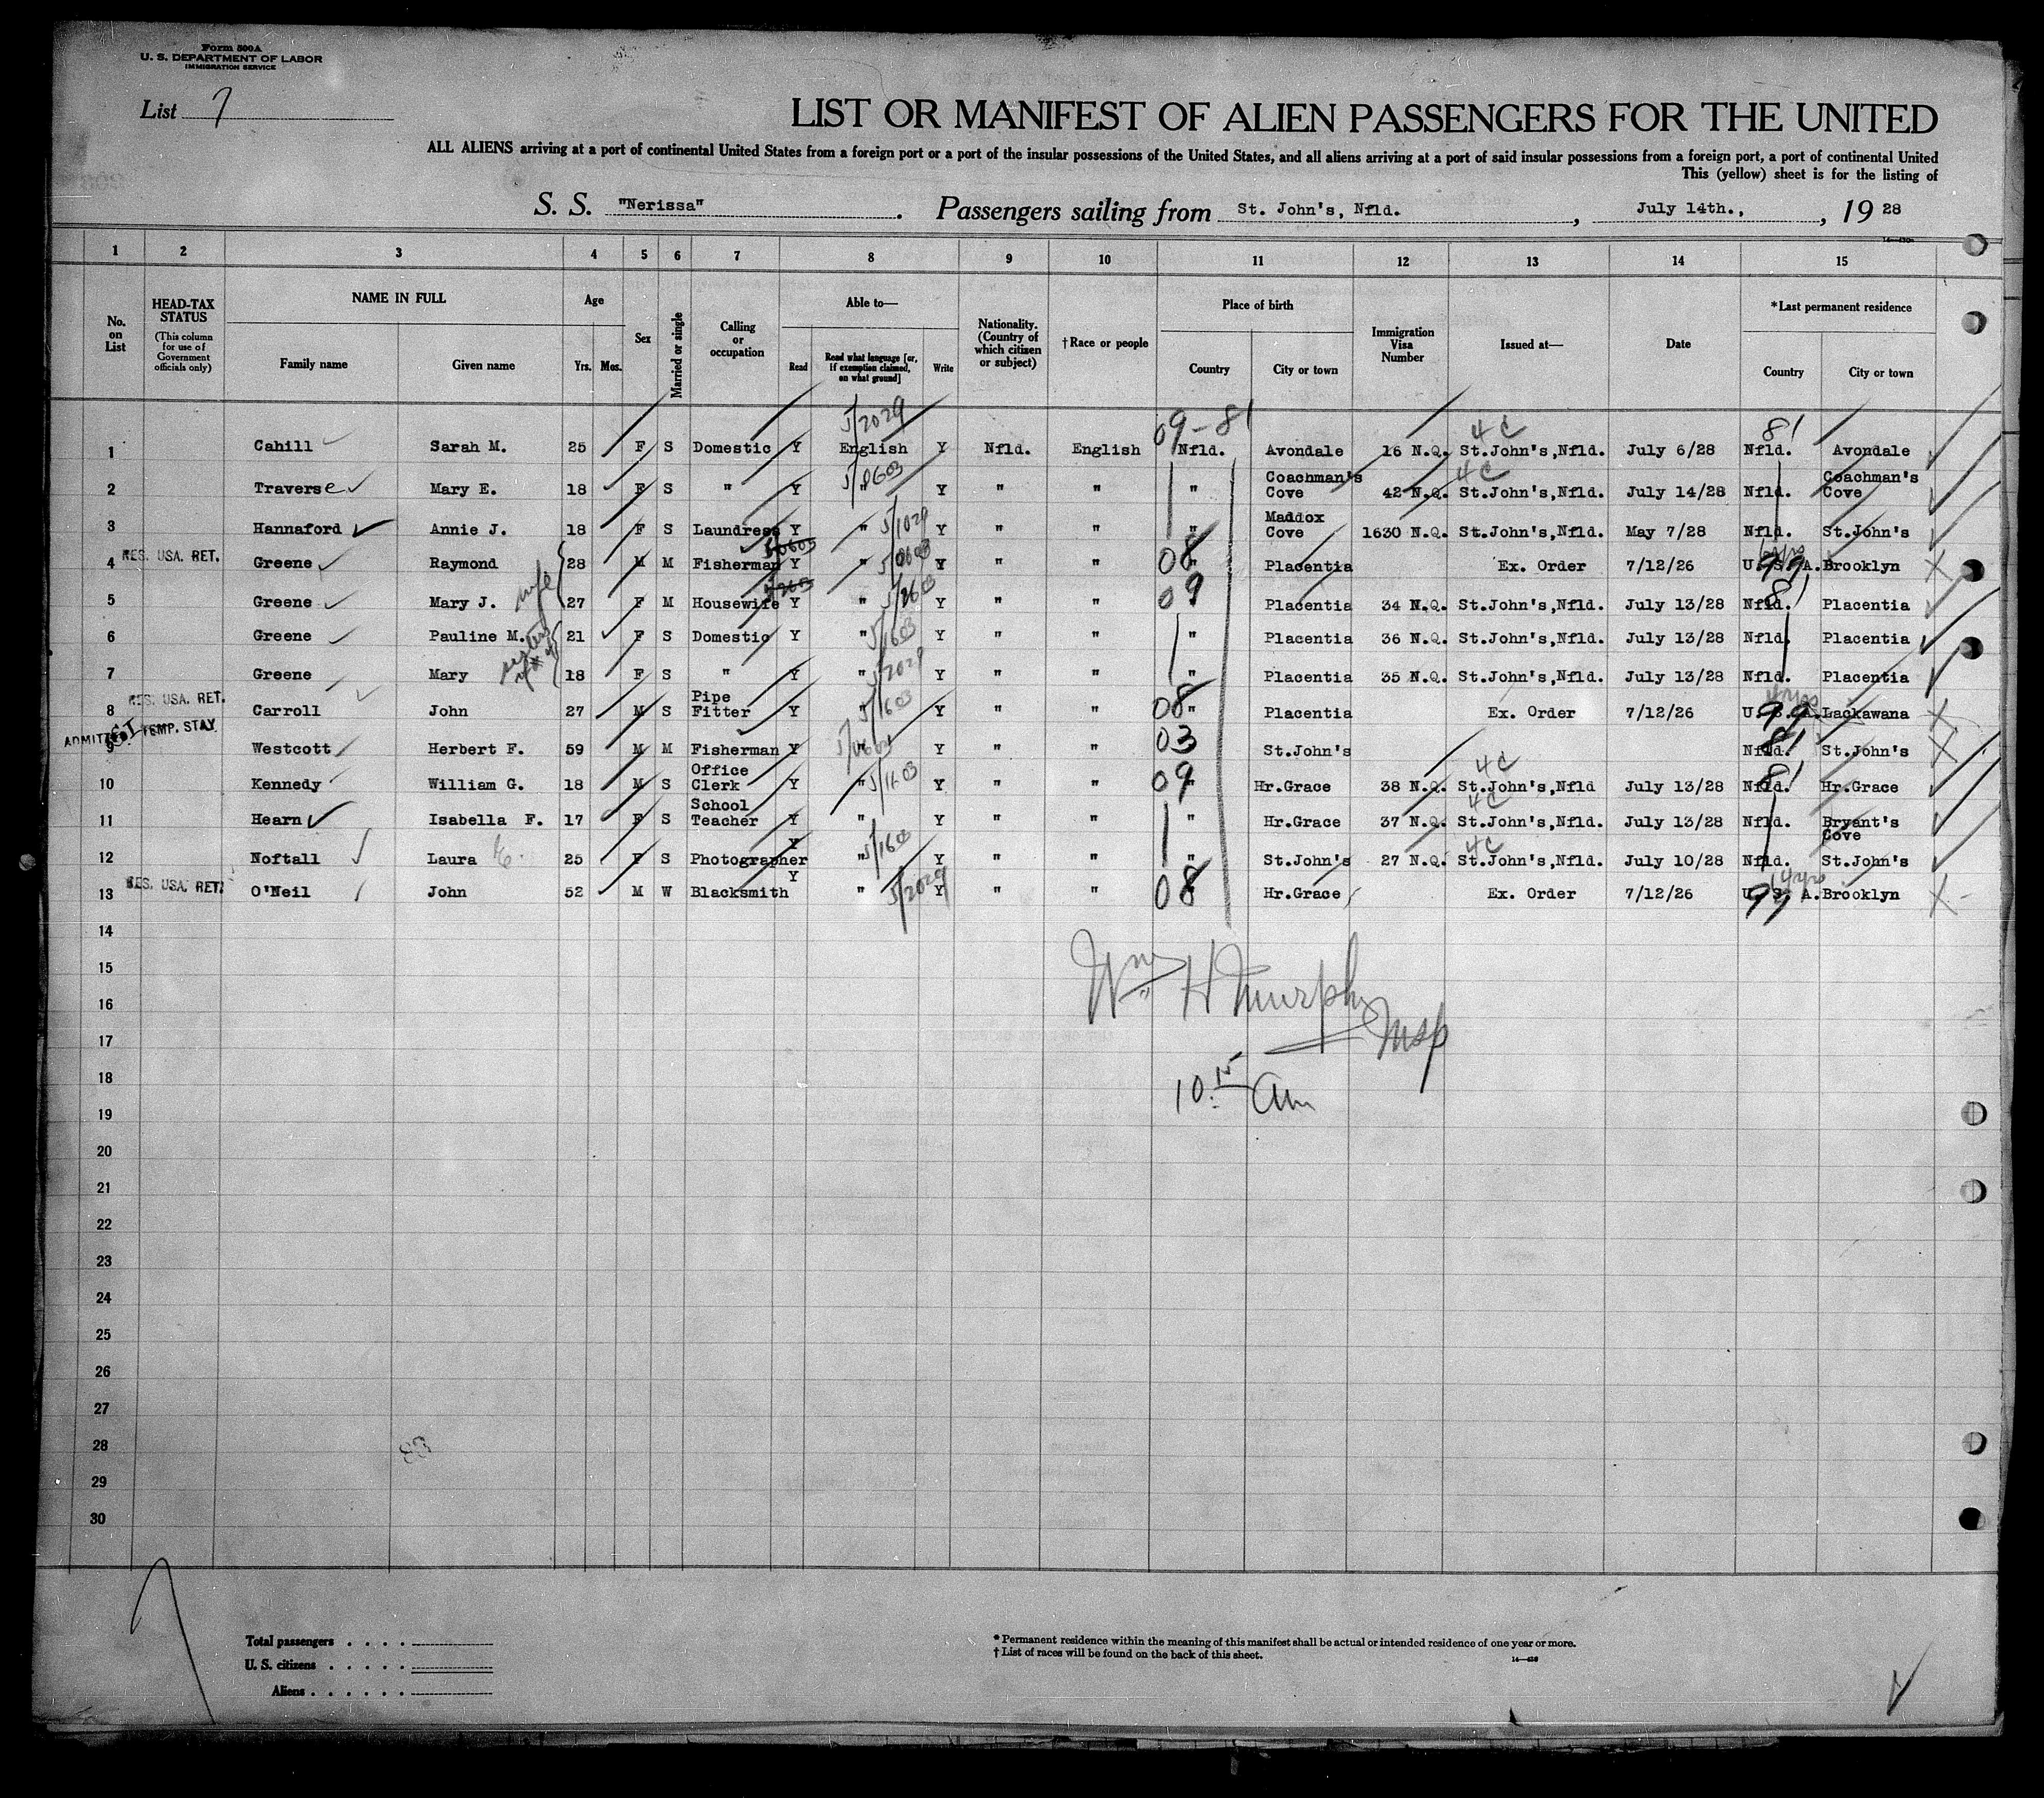 Form 500A
U. S. DEPARTMENT OF LABOR
IMMIGRATION SERVICE
List 7
LIST OR MANIFEST OF ALIEN PASSENGERS FOR THE UNITED
ALL ALIENS arriving at a port of continental United States from a foreign port or a port of the insular possessions of the United States, and all aliens arriving at a port of said insular possessions from a foreign port, a port of continental United
This (yellow) sheet is for the listing of
S. S. "Nerissa". Passengers sailing from St. John's, Nfld., July 14th., , 19 28
1 2 3 4 5 6 7 8 9 10 11 12 13 14 15
No. on List
HEAD-TAX STATUS
(This column for use of Government officials only)
NAME IN FULL
Family name
Given name
Age
Yrs. Mos.
Sex
Married or single
Calling or occupation
Able to—
Read
Read what language [or, if exemption claimed, on what ground]
Write
Nationality. (Country of which citizen or subject)
†Race or people
Place of birth
Country
City or town
Immigration Visa Number
Issued at—
Date
*Last permanent residence
Country
City or town
5/2029 09-81 4C 81
1 Cahill Sarah M. 25 F S Domestic Y English Y Nfld. English Nfld. Avondale 16 N.Q. St.John's,Nfld. July 6/28 Nfld. Avondale
4C
2 Traverse Mary E. 18 F S " Y " Y " " " Coachman's Cove 42 N.Q. St.John's,Nfld. July 14/28 Nfld. Coachman's Cove
3 Hannaford Annie J. 18 F S Laundress Y " 5/1029 Y " " " Maddox Cove 1630 N.Q. St.John's,Nfld. May 7/28 Nfld. St.John's
4 RES. USA. RET. Greene Raymond 28 M M Fisherman Y " Y " " 08 " Placentia Ex. Order 7/12/26 U.S.A. 99 Brooklyn
5 Greene Mary J. wife 27 F M Housewife Y " Y " " 09 " Placentia 34 N.Q. St.John's,Nfld. July 13/28 Nfld. 81 Placentia
6 Greene Pauline M. sisters of #4 21 F S Domestic Y " 5/1603 Y " " " Placentia 36 N.Q. St.John's,Nfld. July 13/28 Nfld. Placentia
7 Greene Mary 18 F S " Y " 5/2029 Y " " " Placentia 35 N.Q. St.John's,Nfld. July 13/28 Nfld. Placentia
8 RES. USA. RET. Carroll John 27 M S Pipe Fitter Y " 5/1603 Y " " 08 " Placentia Ex. Order 7/12/26 U.S.A. 99 Lackawana
9 ADMITTED TEMP. STAY Westcott Herbert F. 59 M M Fisherman Y " Y " " 03 St.John's Nfld. 81 St.John's
4C
10 Kennedy William G. 18 M S Office Clerk Y " 5/1603 Y " " 09 " Hr.Grace 38 N.Q. St.John's,Nfld July 13/28 Nfld. 81 Hr.Grace
4C
11 Hearn Isabella F. 17 F S School Teacher Y " Y " " " Hr.Grace 37 N.Q. St.John's,Nfld. July 13/28 Nfld. Bryant's Cove
4C
12 Noftall Laura E. 25 F S Photographer Y " 5/1603 Y " " " St.John's 27 N.Q. St.John's,Nfld. July 10/28 Nfld. St.John's
13 RES. USA. RET. O'Neil John 52 M W Blacksmith Y " 5/2029 Y " " 08 " Hr.Grace Ex. Order 7/12/26 U.S.A. 99 Brooklyn
14
15
16
Wm H Murphy
17
Msp
18
10:15 Am
19
20
21
22
23
24
25
26
27
28
29
30
Total passengers . . . .
U. S. citizens . . . . .
Aliens . . . . . .
* Permanent residence within the meaning of this manifest shall be actual or intended residence of one year or more.
† List of races will be found on the back of this sheet.